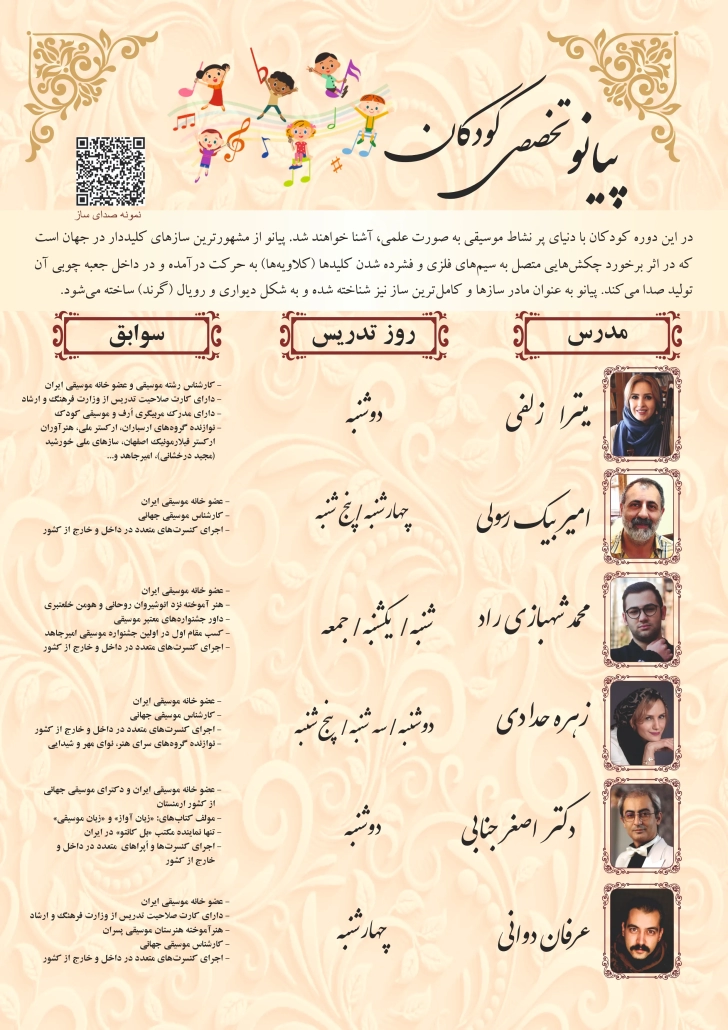 پیانو تخصصی کودکان
نمونه صدای ساز
در این دوره کودکان با دنیای پر نشاط موسیقی به صورت علمی، آشنا خواهند شد. پیانو از مشهورترین سازهای کلیددار در جهان است
که در اثر برخورد چکش‌هایی متصل به سیم‌های فلزی و فشرده شدن کلیدها (کلاویه‌ها) به حرکت درآمده و در داخل جعبه چوبی آن
تولید صدا می‌کند. پیانو به عنوان مادر سازها و کامل‌ترین ساز نیز شناخته شده و به شکل دیواری و رویال (گرند) ساخته می‌شود.
مدرس روز تدریس سوابق
میترا زلفی
دوشنبه
- کارشناس رشته موسیقی و عضو خانه موسیقی ایران
- دارای کارت صلاحیت تدریس از وزارت فرهنگ و ارشاد
- دارای مدرک مربیگری اُرف و موسیقی کودک
- نوازنده گروه‌های ارسباران، ارکستر ملی، هنرآوران
ارکستر فیلارمونیک اصفهان، سازهای ملی خورشید
(مجید درخشانی)، امیرجاهد و...
امیر بیک رسولی
چهارشنبه / پنج شنبه
- عضو خانه موسیقی ایران
- کارشناس موسیقی جهانی
- اجرای کنسرت‌های متعدد در داخل و خارج از کشور
محمد شهبازی راد
شنبه / یکشنبه / جمعه
- عضو خانه موسیقی ایران
- هنر آموخته نزد انوشیروان روحانی و هومن خلعتبری
- داور جشنواره‌های معتبر موسیقی
- کسب مقام اول در اولین جشنواره موسیقی امیرجاهد
- اجرای کنسرت‌های متعدد در داخل و خارج از کشور
زهره حدادی
دوشنبه / سه شنبه / پنج شنبه
- عضو خانه موسیقی ایران
- کارشناس موسیقی جهانی
- اجرای کنسرت‌های متعدد در داخل و خارج از کشور
- نوازنده گروه‌های سرای هنر، نوای مهر و شیدایی
دکتر اصغر جنابی
دوشنبه
- عضو خانه موسیقی ایران و دکترای موسیقی جهانی
از کشور ارمنستان
- مولف کتاب‌های: «زبان آواز» و «زبان موسیقی»
- تنها نماینده مکتب «بل کانتو» در ایران
- اجرای کنسرت‌ها و اُپراهای متعدد در داخل و
خارج از کشور
عرفان دوانی
چهارشنبه
- عضو خانه موسیقی ایران
- دارای کارت صلاحیت تدریس از وزارت فرهنگ و ارشاد
- هنرآموخته هنرستان موسیقی پسران
- کارشناس موسیقی جهانی
- اجرای کنسرت‌های متعدد در داخل و خارج از کشور